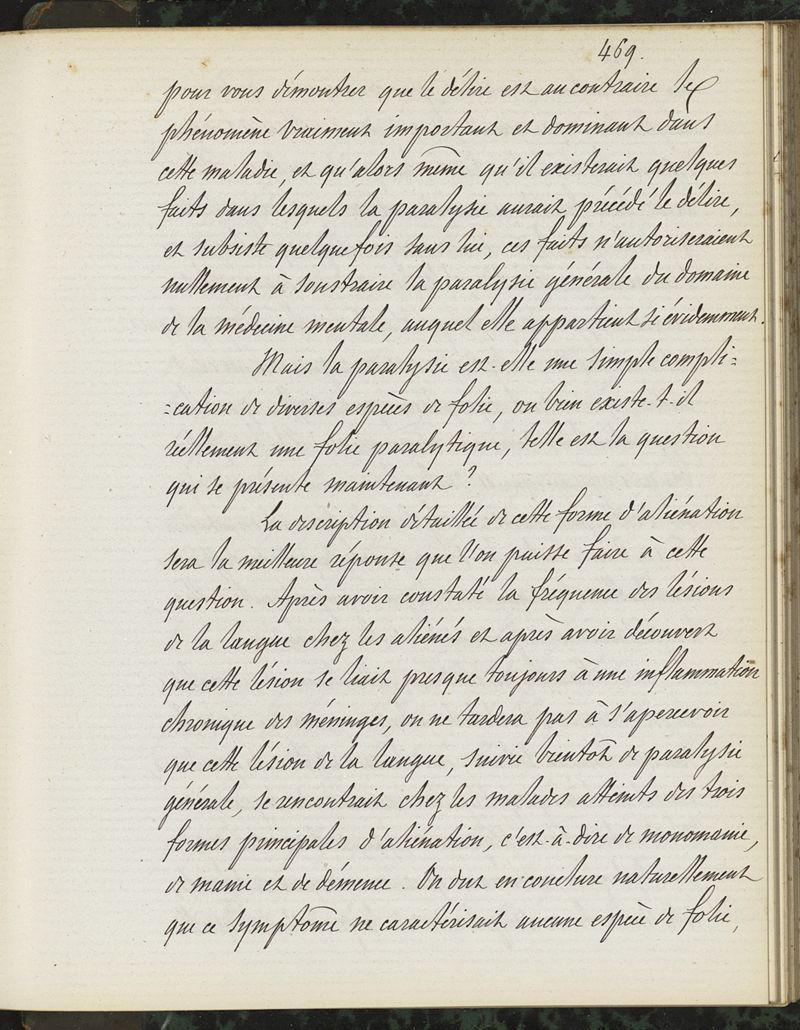 469.
pour vous démontrer que le délire est au contraire le
phénomène vraiment important et dominant dans
cette maladie, et qu'alors même qu'il existerait quelques
faits dans lesquels la paralysie aurait précédé le délire,
et subsiste quelquefois sans lui, ces faits n'autoriseraient
nullement à soustraire la paralysie générale du domaine
de la médecine mentale, auquel elle appartient si évidemment.
Mais la paralysie est-elle une simple compli=
=cation de diverses espèces de folie, ou bien existe-t-il
réellement une folie paralytique, telle est la question
qui se présente maintenant ?
La description détaillée de cette forme d'aliénation
sera la meilleure réponse que l'on puisse faire à cette
question. Après avoir constaté la fréquence des lésions
de la langue chez les aliénés et après avoir découvert
que cette lésion se liait presque toujours à une inflammation
chronique des méninges, on ne tardera pas à s'apercevoir
que cette lésion de la langue, suivie bientôt de paralysie
générale, se rencontrait chez les malades atteints des trois
formes principales d'aliénation, c'est-à-dire de monomanie,
de manie et de démence. On dut en conclure naturellement
que ce symptôme ne caractérisait aucune espèce de folie,